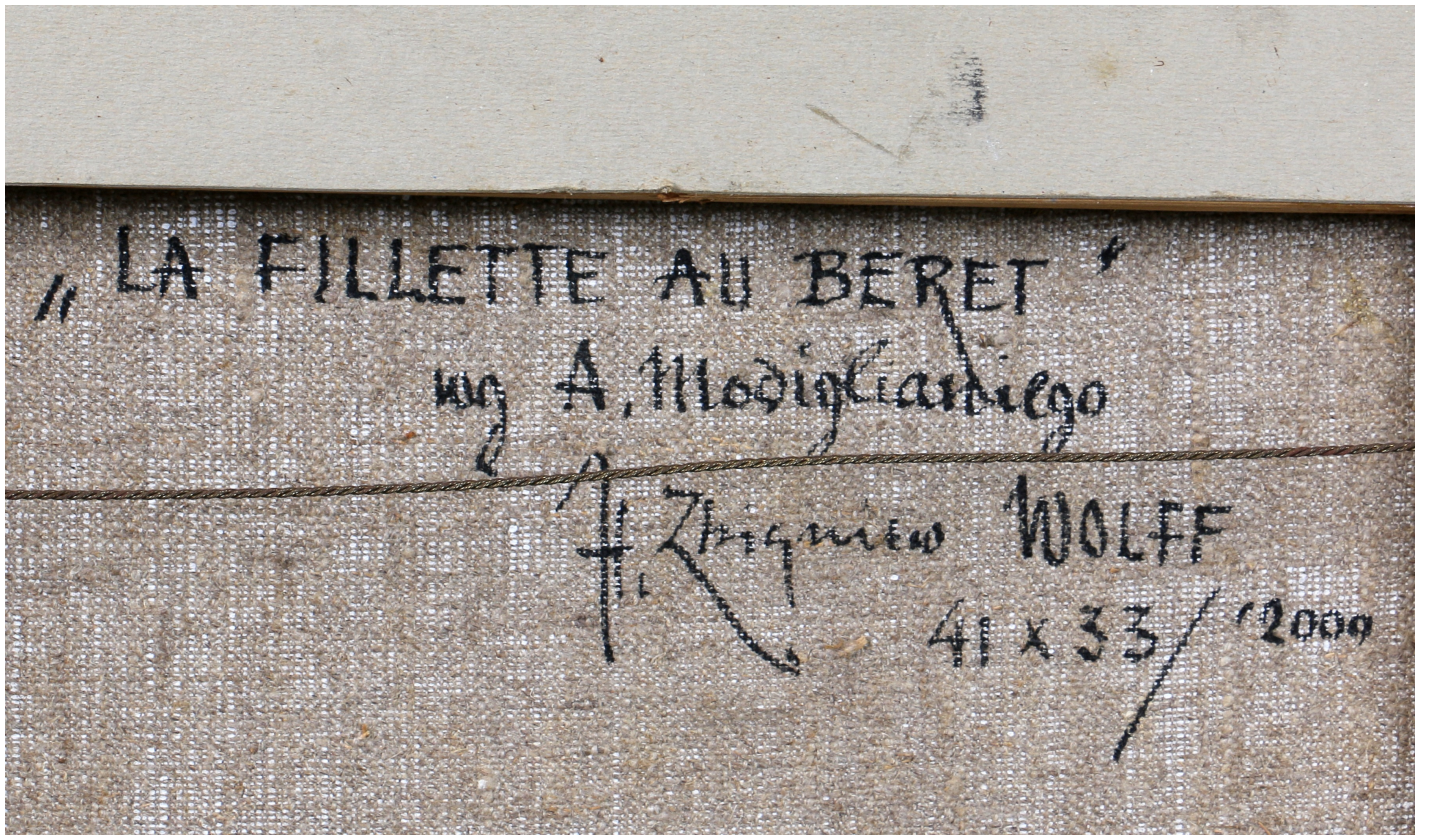 „LA FILLETTE AU BERET"
wg A. Modiglianiego
H. Zbigniew WOLFF
41 x 33 / '2000